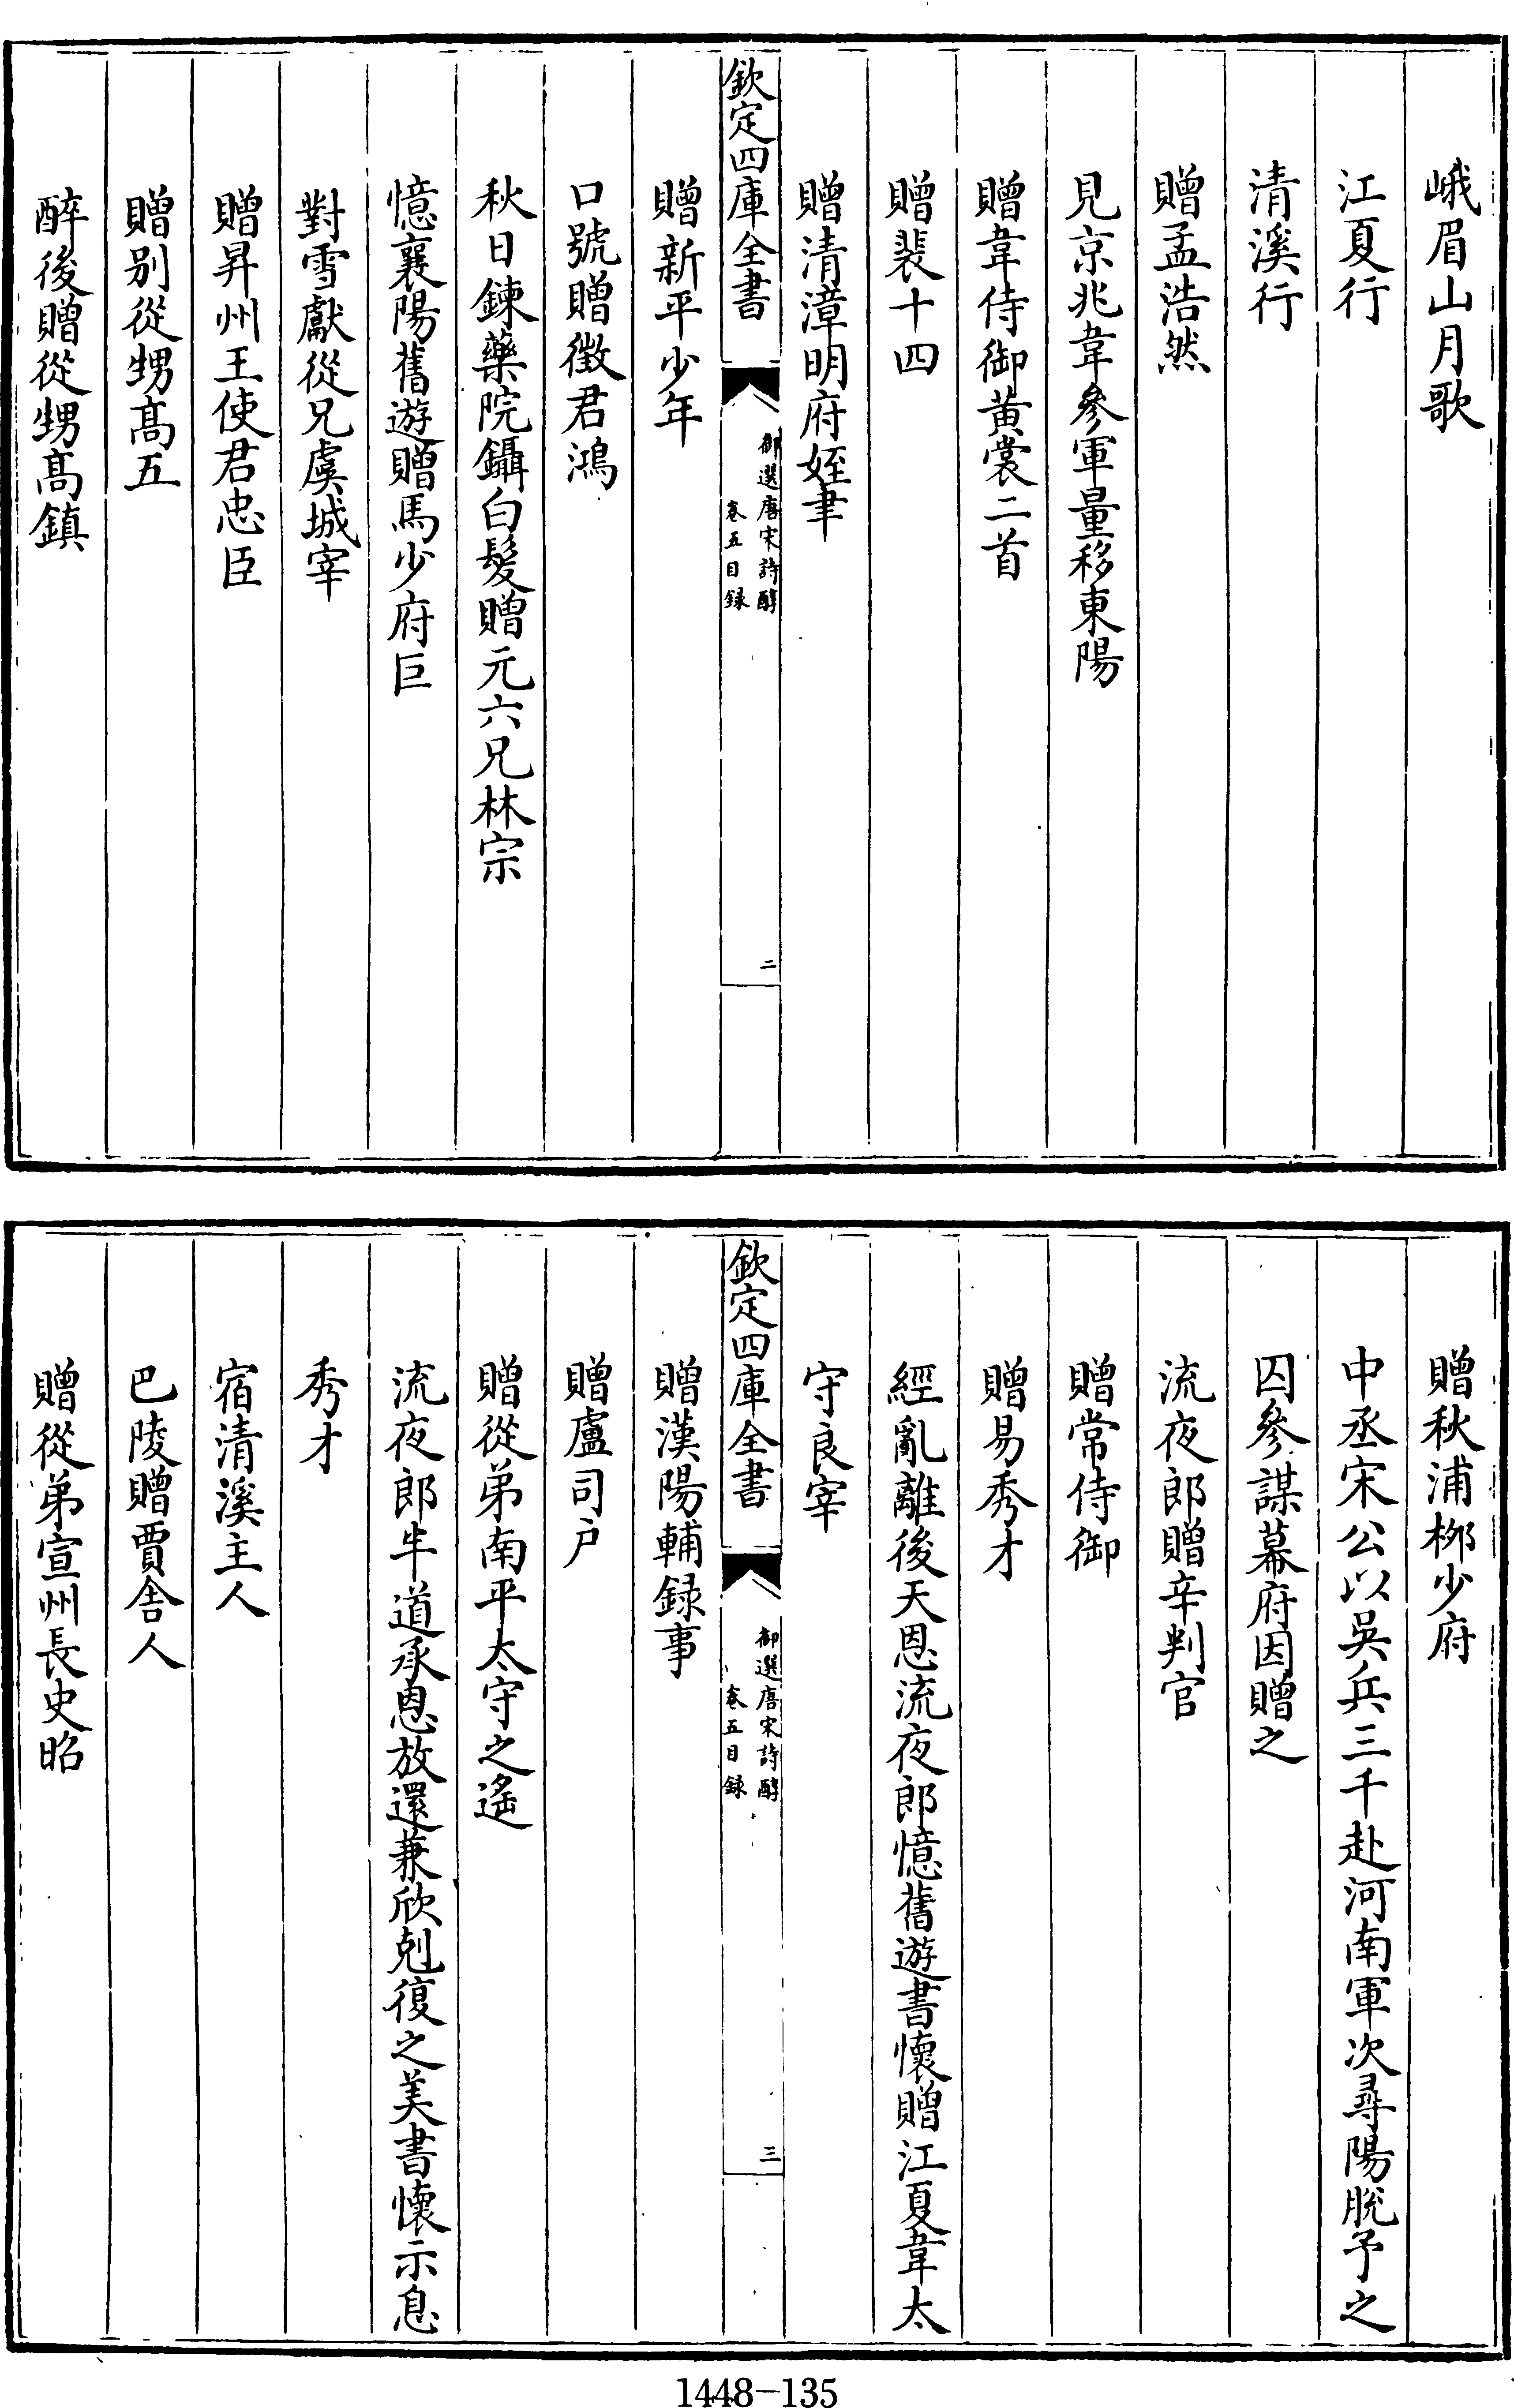 峨眉山月歌
江夏行
清溪行
贈孟浩然
見京兆韋參軍量移東陽
贈韋侍御黃裳二首
贈裴十四
贈清漳明府姪聿
欽定四庫全書
御選唐宋詩醇
卷五目録
二
贈新平少年
口號贈徵君鴻
秋日鍊藥院鑷白髮贈元六兄林宗
憶襄陽舊遊贈馬少府巨
對雪獻從兄虞城宰
贈昇州王使君忠臣
贈別從甥髙五
醉後贈從甥髙鎮
贈秋浦栁少府
中丞宋公以吳兵三千赴河南軍次尋陽脫予之
囚參謀幕府因贈之
流夜郎贈辛判官
贈常侍御
贈易秀才
經亂離後天恩流夜郎憶舊遊書懷贈江夏韋太
守良宰
欽定四庫全書
御選唐宋詩醇
卷五目録
三
贈漢陽輔録事
贈盧司户
贈從弟南平太守之遙
流夜郎半道承恩放還兼欣剋復之美書懷示息
秀才
宿清溪主人
巴陵贈賈舍人
贈從弟宣州長史昭
1448-135